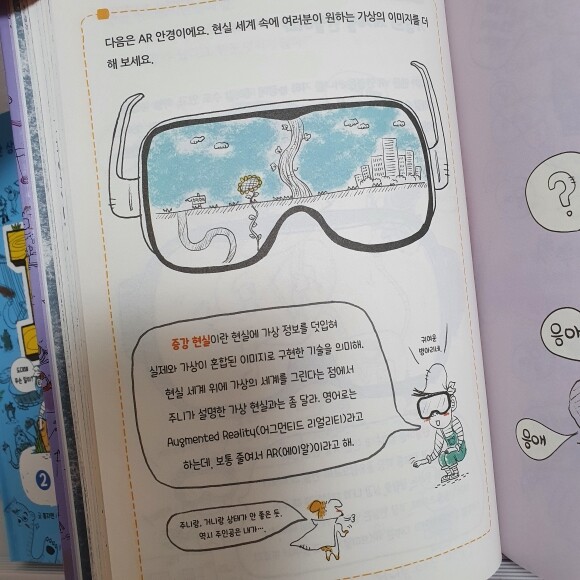 다음은 AR 안경이에요. 현실 세계 속에 여러분이 원하는 가상의 이미지를 더
해 보세요.
증강 현실이란 현실에 가상 정보를 덧입혀
실제와 가상이 혼합된 이미지로 구현한 기술을 의미해.
현실 세계 위에 가상의 세계를 그린다는 점에서
주니가 설명한 가상 현실과는 좀 달라. 영어로는
Augmented Reality(어그먼티드 리얼리티)라고
하는데, 보통 줄여서 AR(에이알)이라고 해.
귀여운
병아리네
주니랑, 거니랑 상태가 안 좋은 듯.
역시 주인공은 내가….
?
응애
응애
2